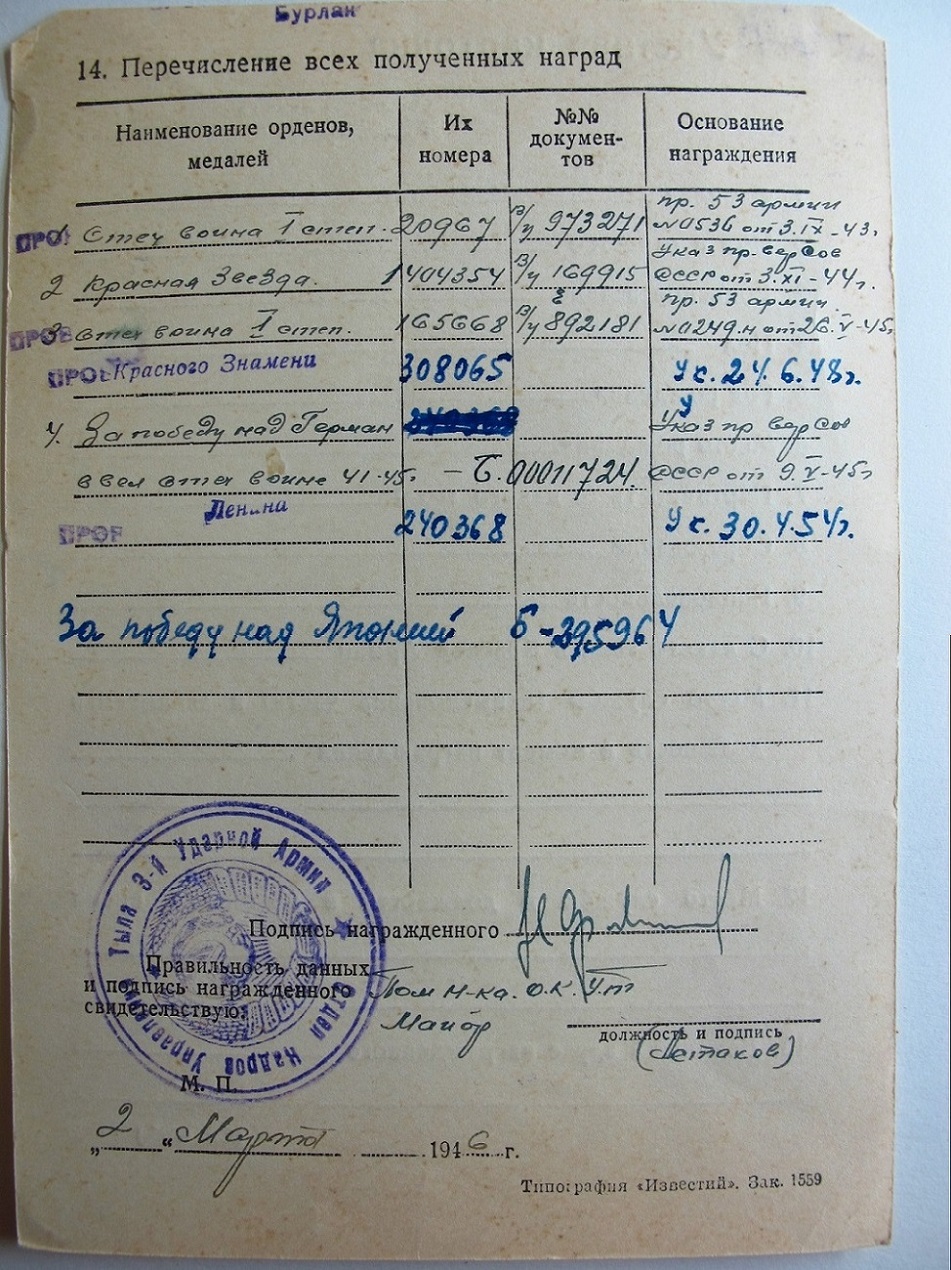 Бурлак
14. Перечисление всех полученных наград
Наименование орденов, медалей
Их номера
№№ докумен-тов
Основание награждения
пр. 53 армии
ПРОВ Отеч война I степ. 20967 в/ч 973271 №0536 от 3.IX-43г.
Указ пр. вер Сов
2 Красная Звезда. 1404354 в/ч 169915 СССР от 3.XI-44г.
пр. 53 армии
ПРОВ 3 Отеч война I степ. 165668 в/ч 892181 №0249.н от 26.V-45г
ПРОВ Красного Знамени 308065 Ук. 24.6.48г.
4. За победу над Герман Указ пр вер Сов
в вел отеч войне 41-45г. – Б.00011724. СССР от 9.V-45г
Ленина
ПРОВ 240368 Ук. 30.4.54г.
За победу над Японией Б-295964
Подпись награжденного
Правильность данных
и подпись награжденного Пом н-ка. О.К. У.т
свидетельствую: Майор
должность и подпись
М. П.
Отдел Кадров Управления Тыла 3-й Ударной Армии
„2“ Марта 1946 г.
Типография «Известий». Зак. 1559